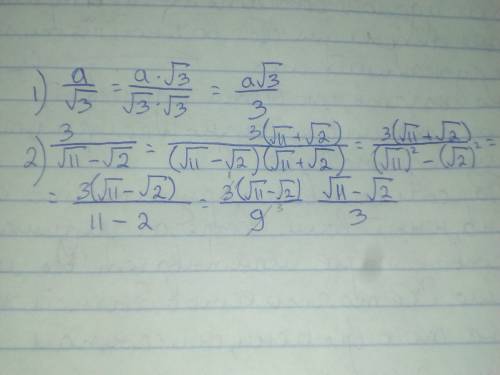 1) a/√3 = a·√3/√3·√3 = a√3/3
2) 3/√11-√2 = 3(√11+√2)/(√11-√2)(√11+√2) = 3(√11+√2)/(√11)²-(√2)² =
= 3(√11-√2)/11-2 = 3(√11-√2)/9 √11-√2/3